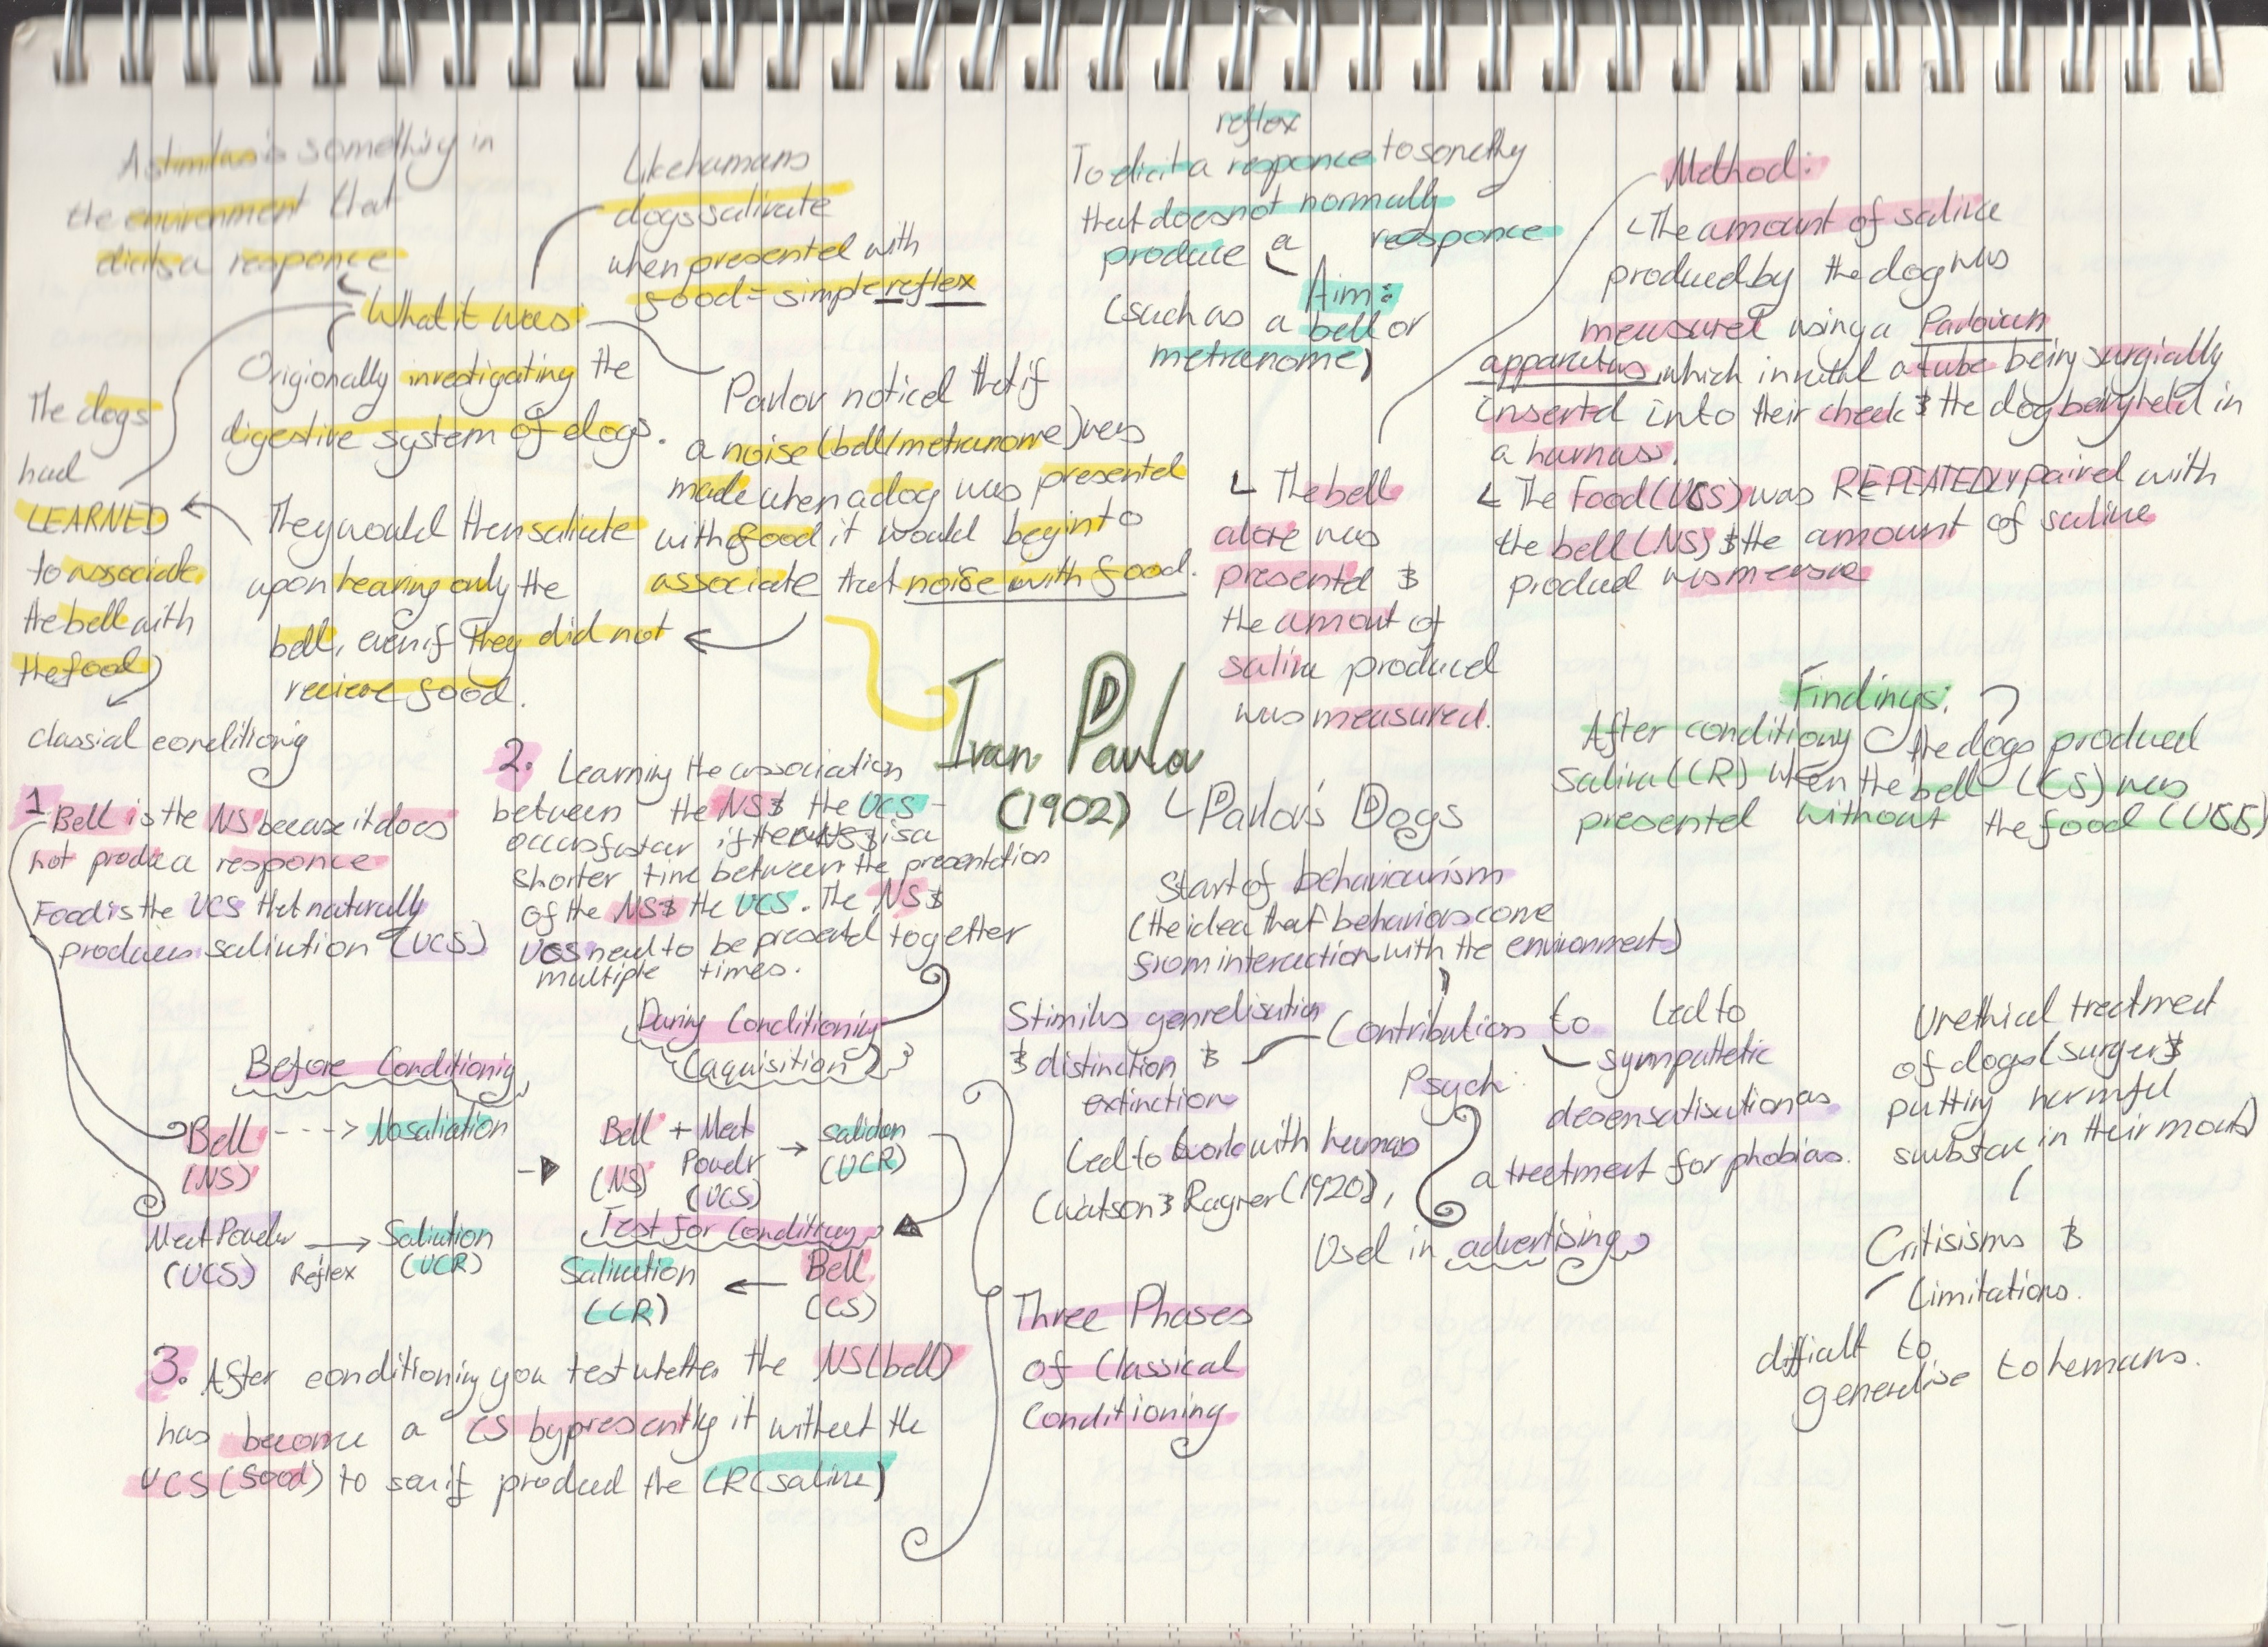 A stimulus is something in
the envirenment that
elicits a responce
Like humans
dogs salivate
when presented with
food = simple reflex
What it was:
Origionally investigating the
digestive system of dogs.
Pavlov noticed that if
a noise (bell/metranome) was
made when a dog was presented
with food it would begin to
associate that noise with food.
They would then salivate
upon hearing only the
bell, even if they did not
recieve food.
The dogs
had
LEARNED
to associate
the bell with
the food
classial conditiong
reflex
To elicit a responce to somethy
that does not normally
produce a responce
Aim:
(such as a bell or
metranome)
Method:
The amount of saliva
produced by the dog was
measured using a Pavlovian
apparatus, which involved a tube being surgially
inserted into their cheek & the dog being held in
a harnass.
The Food (UCS) was REPEATEDLY paired with
the bell (NS) & the amount of saliva
produced was measure
The bell
alone was
presented &
the amount of
saliva produced
was measured.
Ivan Pavlov
(1902)
Pavlov's Dogs
Findings:
After conditiong the dogs produced
saliva (CR) when the bell (CS) was
presented without the food (UCS)
1 Bell is the NS because it does
not produce a responce
Food is the UCS that naturally
produces salivation (UCS)
2. Learning the association
between the NS & the UCS
occurs faster if there is a
shorter time between the presentation
of the NS & the UCS. The NS &
UCS need to be presented together
multiple times.
During Conditioning
(aquisition)
Before Conditioning
Bell ---> No salivation
(NS)
Meat Powder → Salivation
(UCS) Reflex (UCR)
Bell + Meat Powder → salivation
(NS) (UCS) (UCR)
Test for Conditiong
Salivation ← Bell
(CR) (CS)
3. After conditioning you test whether the NS (bell)
has become a CS by presenting it without the
UCS (food) to see if produced the CR (saliva)
Three Phases
of Classical
Conditioning
Start of behaviourism
(the idea that behaviors come
from interaction with the environment)
Contribution to
Psych
Stimilus genrelisation
& distinction &
extinction
Led to work with humans
(Watson & Rayner (1920),
Led to
sympathetic
desensatisation as
a treatment for phobias.
Used in advertising
Unethical treatment
of dogs (surgery &
putting harmful
substance in their mouth)
Critisisms &
Limitations.
difficult to
generelise to humans.